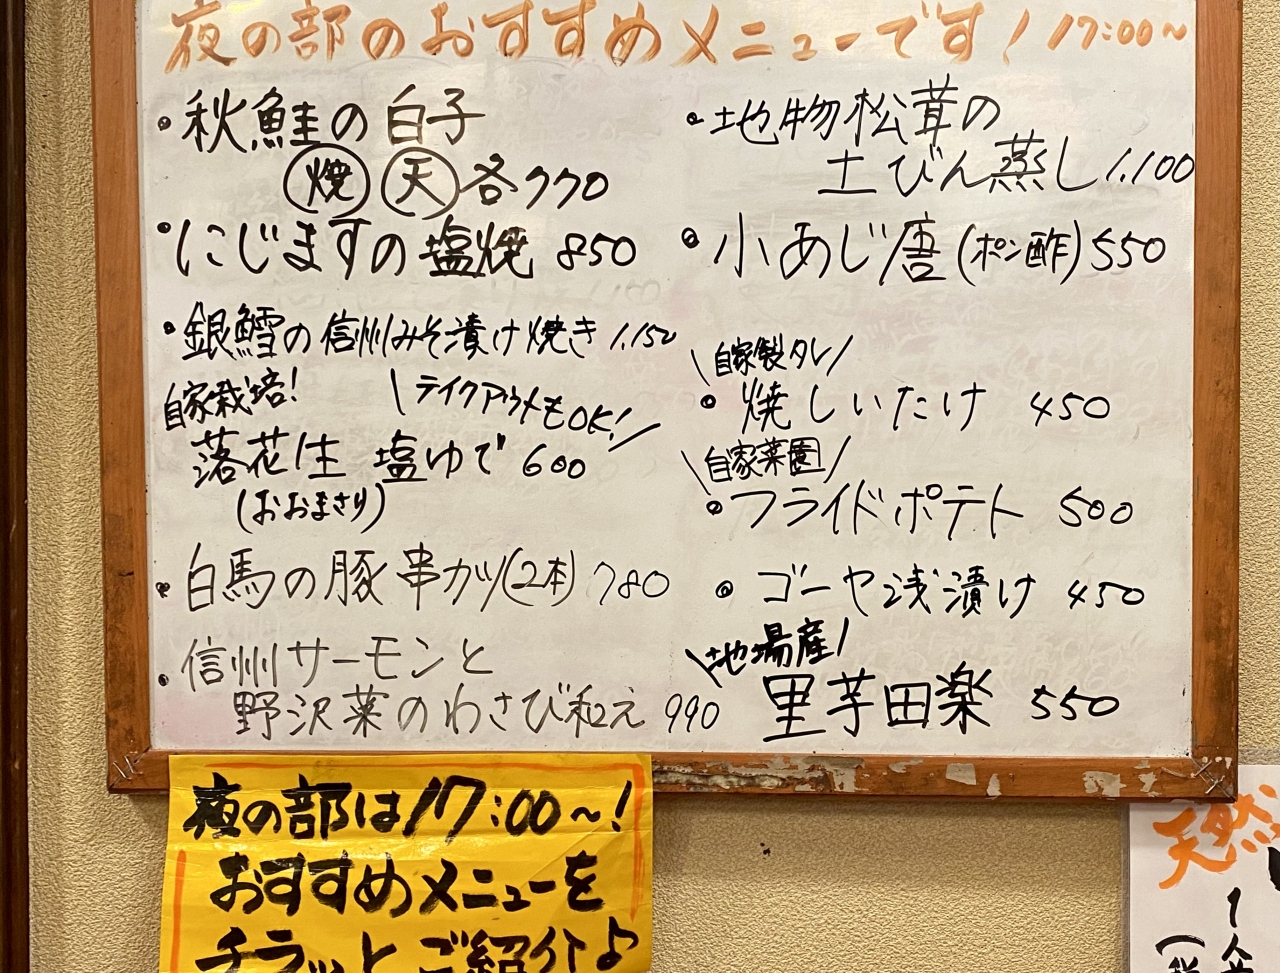 夜の部のおすすめメニューです! 17:00〜
・秋鮭の白子
焼 天 各770
・にじますの塩焼 850
・銀鱈の信州みそ漬け焼き 1,150
自家栽培!
\テイクアウトもOK!/
落花生 塩ゆで 600
(おおまさり)
・白馬の豚串カツ(2本) 780
・信州サーモンと
野沢菜のわさび和え 990
・地物松茸の
土びん蒸し 1,100
・小あじ唐(ポン酢) 550
\自家製タレ/
・焼しいたけ 450
\自家菜園/
・フライドポテト 500
・ゴーヤ浅漬け 450
\地場産/
里芋田楽 550
夜の部は17:00〜!
おすすめメニューを
チラッとご紹介♪
天然
1人